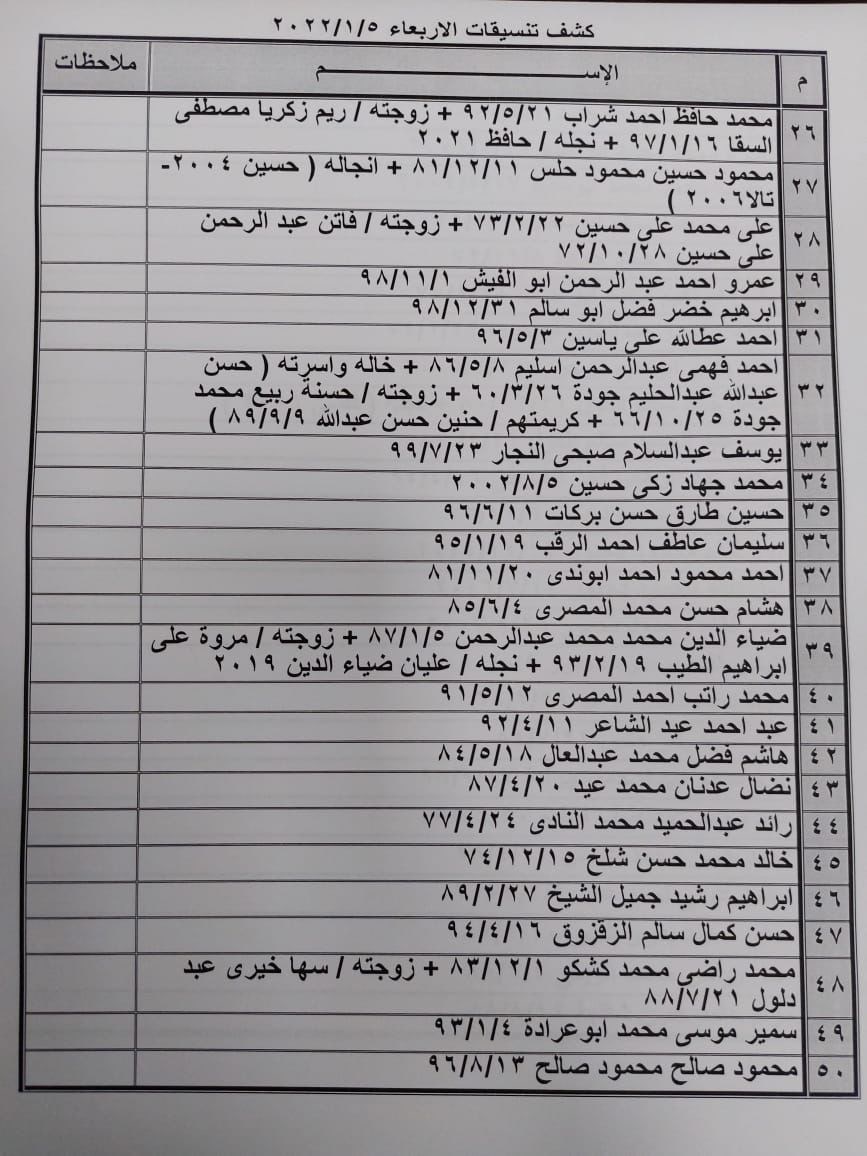 كشف تنسيقات الاربعاء ٢٠٢٢/١/٥
م الإســـــــــــــم ملاحظات
٢٦ محمد حافظ احمد شراب ٩٢/٥/٢١ + زوجته / ريم زكريا مصطفى
السقا ٩٧/١/١٦ + نجله / حافظ ٢٠٢١
٢٧ محمود حسين محمود حلس ٨١/١٢/١١ + انجاله ( حسين ٢٠٠٤-
تالا٢٠٠٦ )
٢٨ على محمد على حسين ٧٣/٢/٢٢ + زوجته / فاتن عبد الرحمن
على حسين ٧٢/١٠/٢٨
٢٩ عمرو احمد عبد الرحمن ابو الفيش ٩٨/١١/١
٣٠ ابرهيم خضر فضل ابو سالم ٩٨/١٢/٣١
٣١ احمد عطالله على ياسين ٩٦/٥/٣
٣٢ احمد فهمى عبدالرحمن اسليم ٨٦/٥/٨ + خاله واسرته ( حسن
عبدالله عبدالحليم جودة ٦٠/٣/٢٦ + زوجته / حسنة ربيع محمد
جودة ٦٦/١٠/٢٥ + كريمتهم / حنين حسن عبدالله ٨٩/٩/٩ )
٣٣ يوسف عبدالسلام صبحى النجار ٩٩/٧/٢٣
٣٤ محمد جهاد زكى حسين ٢٠٠٢/٨/٥
٣٥ حسين طارق حسن بركات ٩٦/٦/١١
٣٦ سليمان عاطف احمد الرقب ٩٥/١/١٩
٣٧ احمد محمود احمد ابوندى ٨١/١١/٢٠
٣٨ هشام حسن محمد المصرى ٨٥/٦/٤
٣٩ ضياء الدين محمد محمد عبدالرحمن ٨٧/١/٥ + زوجته / مروة على
ابراهيم الطيب ٩٣/٢/١٩ + نجله / عليان ضياء الدين ٢٠١٩
٤٠ محمد راتب احمد المصرى ٩١/٥/١٢
٤١ عبد احمد عيد الشاعر ٩٢/٤/١١
٤٢ هاشم فضل محمد عبدالعال ٨٤/٥/١٨
٤٣ نضال عدنان محمد عيد ٨٧/٤/٢٠
٤٤ رائد عبدالحميد محمد النادى ٧٧/٤/٢٤
٤٥ خالد محمد حسن شلخ ٧٤/١٢/١٥
٤٦ ابراهيم رشيد جميل الشيخ ٨٩/٢/٢٧
٤٧ حسن كمال سالم الزقزوق ٩٤/٤/١٦
٤٨ محمد راضى محمد كشكو ٨٣/١٢/١ + زوجته / سها خيرى عبد
دلول ٨٨/٧/٢١
٤٩ سمير موسى محمد ابوعرادة ٩٣/١/٤
٥٠ محمود صالح محمود صالح ٩٦/٨/١٣